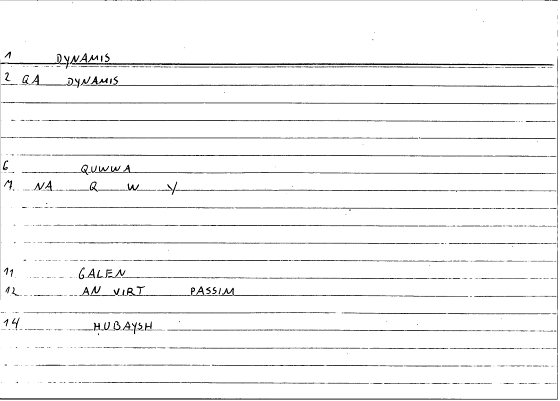 1 DYNAMIS
2 GA DYNAMIS
6 QUWWA
7 NA Q W Y
11 GALEN
12 AN VIRT PASSIM
14 ḤUBAYSH